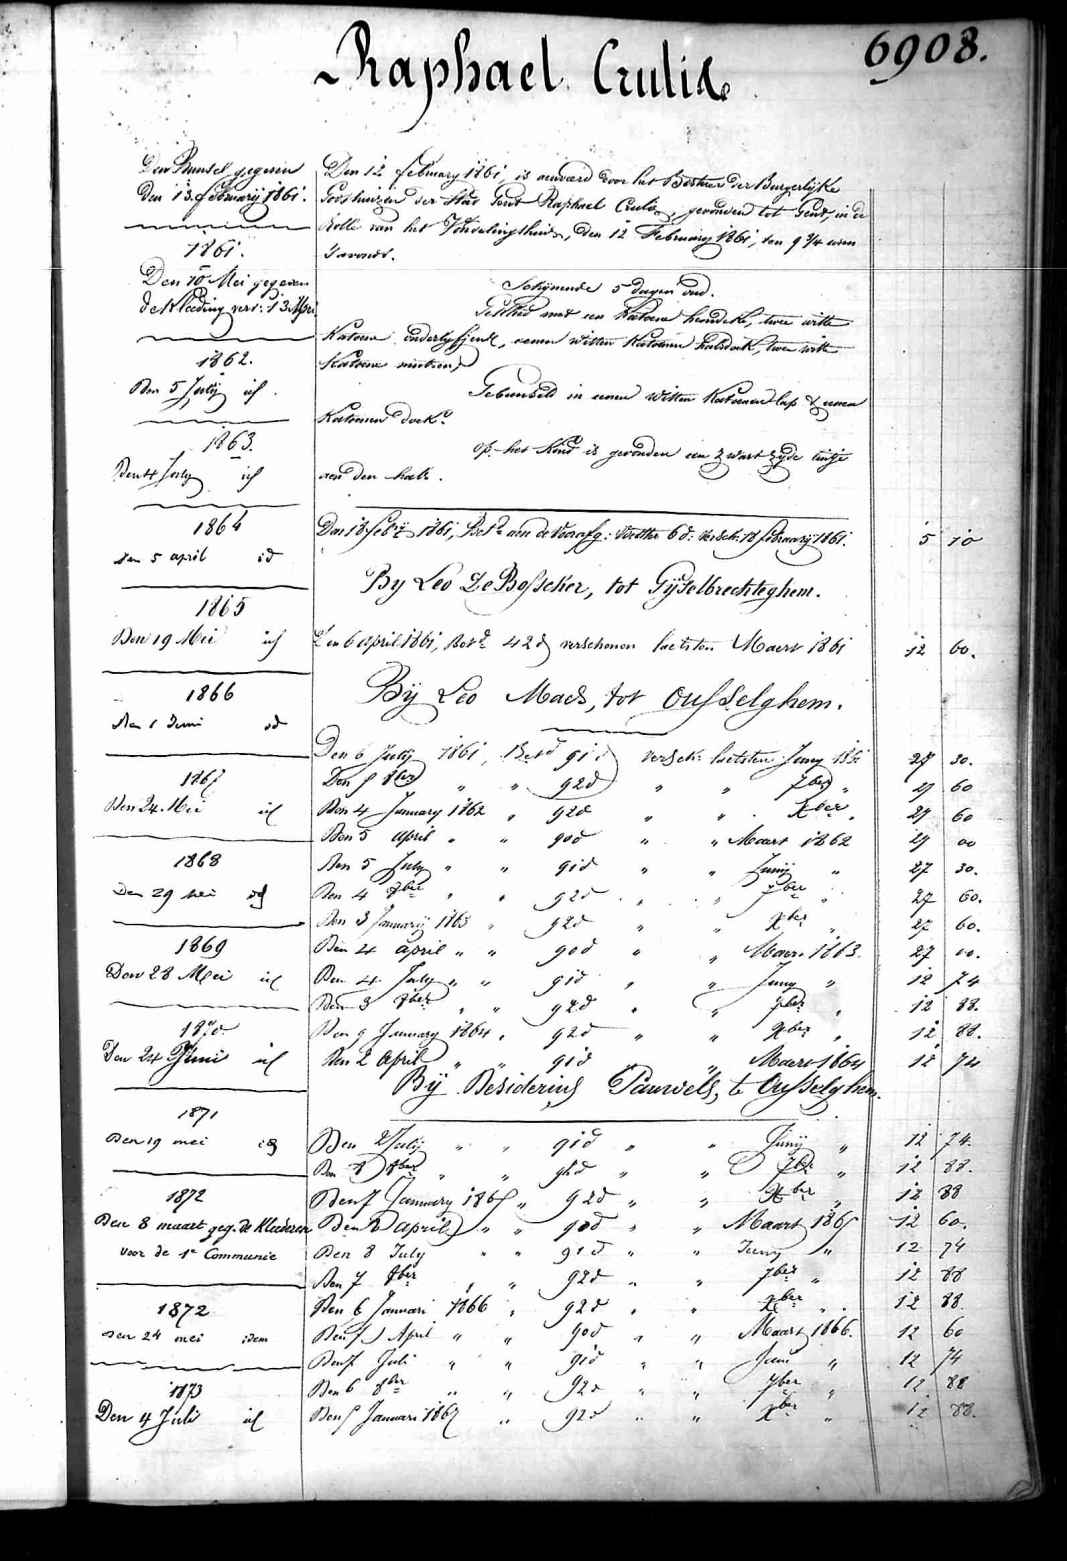 6908.
Raphael Crulix
Den Bunsel gegeven
Den 13 february 1861.
1861.
Den 10 Mei gegeven
de kleeding vers.
1862.
Den 5 July id
1863.
Den 4 July id
1864
Den 5 april id
1865
Den 19 Mei id
1866
Den 1 Juni id
1867
Den 24 Mei id
1868
Den 29 mei id
1869
Den 28 Mei id
1870
Den 24 Juni id
1871
Den 19 mei id
1872
Den 8 maart geg. de Kleederen
voor de 1e Communie
1872
Den 24 mei idem
1873
Den 4 Juli id
Den 12 february 1861, is aenvaerd door het Bestuer der Burgerlyke
Godshuizen der Stad Gent Raphael Crulix, gevonden tot Gend in de
Rolle van het Vondelingshuis, den 12 February 1861, ten 9 3/4 uren
's avonds.
Schynende 5 dagen oud.
Gekleed met een Katoene hemdeke, twee witte
Katoene onderlyfjens, eenen witten Katoenen halsdoek, twee witte
Katoene mutsen,
Gebunseld in eenen witten Katoenen lap & eenen
Katoenen doek.
op het Kind is gevonden een zwart zyde lintje
aen den hals.
Den 18 feb. 1861, Bet. aen de Voorsg: Voedster 6 d: versch: 18 february 1861. 5 10
By Leo De Bosscker, tot Gyselbrechteghem.
Den 6 april 1861, Betd 42 d verschenen laetsten Maert 1861 12 60.
By Leo Maes, tot Ousselghem.
Den 6 July 1861, Betd 91 d versch: laetsten Juny 1861 27 30.
Den 5 8ber " " 92d " " 7ber " 27 60
Den 4 January 1862 " 92d " " Xber " 27 60
Den 5 april " " 90d " " Maart 1862 27 00
Den 5 July " " 91d " " Junij " 27 30.
Den 4 8ber " " 92d " " 7ber " 27 60.
Den 3 January 1863 " 92d " " Xber " 27 60.
Den 4 april " " 90d " " Maert 1863. 27 00.
Den 4 July " " 91d " " Juny " 12 74
Den 3 8ber " " 92d " " 7ber " 12 88.
Den 9 January 1864 " 92d " " Xber " 12 88.
Den 2 April " " 91d " " Maert 1864 12 74
By Desiderius Pauwels, te Ousselghem.
Den 2 July " " 91d " " Junij " 12 74.
Den 8 8ber " " 92d " " 7ber " 12 88.
Den 7 January 1865 " 92d " " Xber " 12 88
Den 8 april " " 90d " " Maart 1865 12 60.
Den 8 July " " 91d " " Juny " 12 74
Den 7 8ber " " 92d " " 7ber " 12 88
Den 6 Januari 1866 " 92d " " Xber " 12 88.
Den 5 April " " 90d " " Maart 1866. 12 60
Den 7 Juli " " 91d " " Juni " 12 74
Den 6 8ber " " 92d " " 7ber " 12 88
Den 5 Januari 1867 " 92d " " Xber " 12 88.